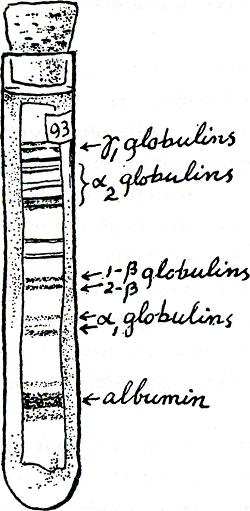 93
γ₁ globulins
α₂ globulins
1-β globulins
2-β
α₁ globulins
albumin